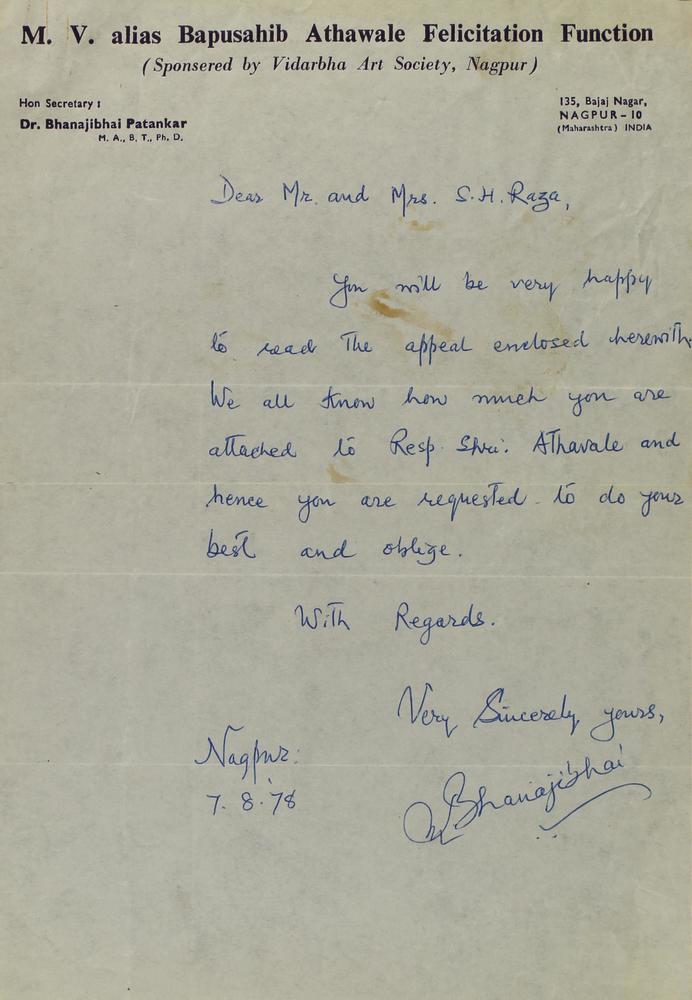 M. V. alias Bapusahib Athawale Felicitation Function
(Sponsered by Vidarbha Art Society, Nagpur)
Hon Secretary :
Dr. Bhanajibhai Patankar
M. A., B. T., Ph. D.
135, Bajaj Nagar,
NAGPUR - 10
(Maharashtra) INDIA
Dear Mr. and Mrs. S. H. Raza,
You will be very happy
to read the appeal enclosed herewith.
We all know how much you are
attached to Resp. Shri. Athavale and
hence you are requested to do your
best and oblige.
With Regards.
Very Sincerely yours,
Nagpur.
7. 8. '78
Bhanajibhai